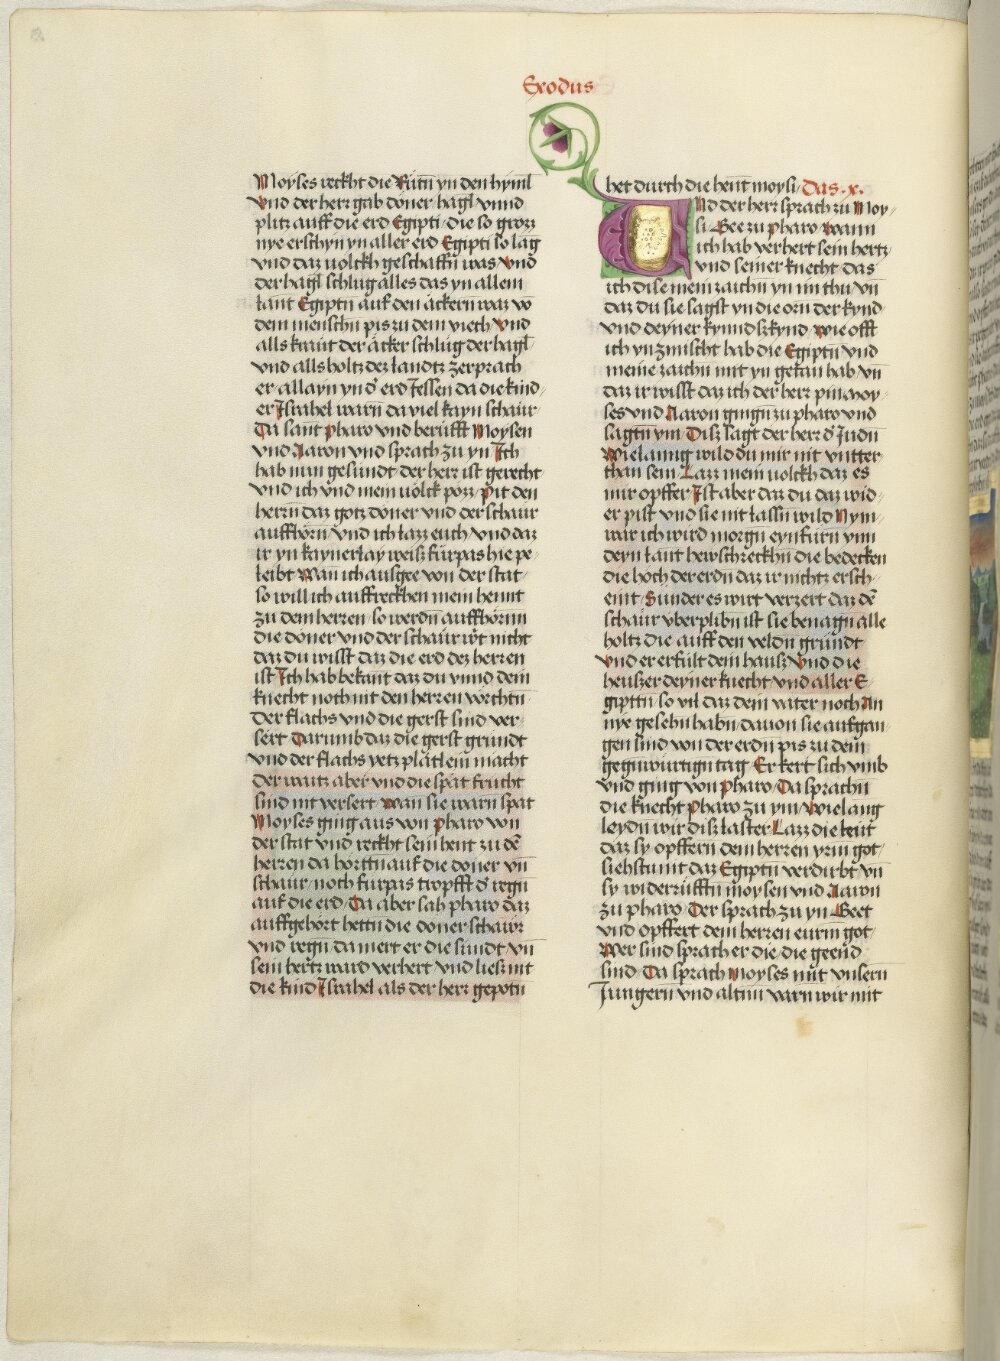 Exodus
Moyses reckht die Rutn yn den hyml
Vnd der herr gab doner hagl vnnd
plitz auff die erd Egipti die so grozz
nye erschyn yn aller erd Egipti so lag
vnd daz volckh geschaffn was vnd
der hagl schlug alles das yn allem
lant Egiptn auf den äckern waz vo
dem menschn pis zu dem viech Vnd
alls kraut der äcker schlug der hagl
vnd alls holtz dez landtz zerprach
er allayn yn d erd Jessen da die kind
er Israhel warn da viel kayn schaur
Da sant Pharo vnd berufft Moysen
vnd Aaron vnd sprach zu yn Ich
hab nun gesundt der herr ist gerecht
vnd ich vnd mein volck pozz Pit den
herrn daz gotz doner vnd der schaur
auffhörn vnd ich lazz euch vnd daz
ir yn kaynerlay weis fürpas hie pe
leibt Wan ich ausgee von der stat
so will ich auffreckhen mein hennt
zu dem herren so werdn auffhörnn
die doner vnd der schaur wt nicht
daz du wisst daz die erd dez herren
ist Ich hab bekant daz du vnnd dein
knecht noch nit den herren vörchtn
Der flachs vnd die gerst sind ver
sert Darumb daz die gerst gründt
vnd der flachs yetz plätlein macht
der waitz aber vnd die spät frücht
sind nit versert wan sie warn spat
Moyses ging aus von Pharo von
der stat vnd reckht sein hent zu de
herren da hortn auf die doner vn
schaur noch fürpas tropfft d regn
auf die erd Da aber sah pharo daz
auffgehört hettn die doner schawr
vnd regn da mert er die sündt vn
sein hertz ward verhert vnd lies nit
die kind Israhel als der herr gepotn
het durch die hent moysi Das .x.
Vnd der herr sprach zu Moy
si Gee zu pharo wann
ich hab verhert sein hertz
vnd seiner knecht das
ich dise mein zaichn yn im thu vn
daz du sie sagst yn die orn der kynd
vnd deyner kynndszkynd wie offt
ich yn zmischt hab die Egiptn vnd
meine zaichn mit yn getan hab vn
daz ir wisst daz ich der herr pin moy
ses vnd Aaron gingn zu pharo vnd
sagtn ym Disz sagt der herr d Judn
Wielannig wild du mir nit vntter
than sein Lazz mein volckh daz es
mir opffer Ist aber daz du daz wid
er pist vnd sie nit lassn wild Nym
war ich wird morgn eynfürn ynn
deyn lant hewschreckhn die bedecken
die höch der erdn daz ir nichtz ersch
eint Sunder es wirt verzert daz de
schaur vberplibn ist sie benagn alle
holtz die auff den veldn gründt
Vnd er erfült dein hausz Vnd die
heuszer deyner knecht vnd aller E
giptn so vil daz dein väter noch An
nye gesehn habn dauon sie aufgan
gen sind von der erdn pis zu dem
gegnwurtign tag Er kert sich vmb
vnd ging von Pharo Da sprachn
die knecht Pharo zu ym Wielang
leydn wir disz laster Lazz die leut
daz sy opffern dem herren yrm got
siehstu nit daz Egiptn verdirbt vn
sy widerrufftn moysen vnd Aaron
zu pharo Der sprach zu yn Geet
vnd opffert dem herren eurm got
Wer sind sprach er die die geend
sind Da sprach Moyses mit vnsern
Jungern vnd altnn warn wir mit